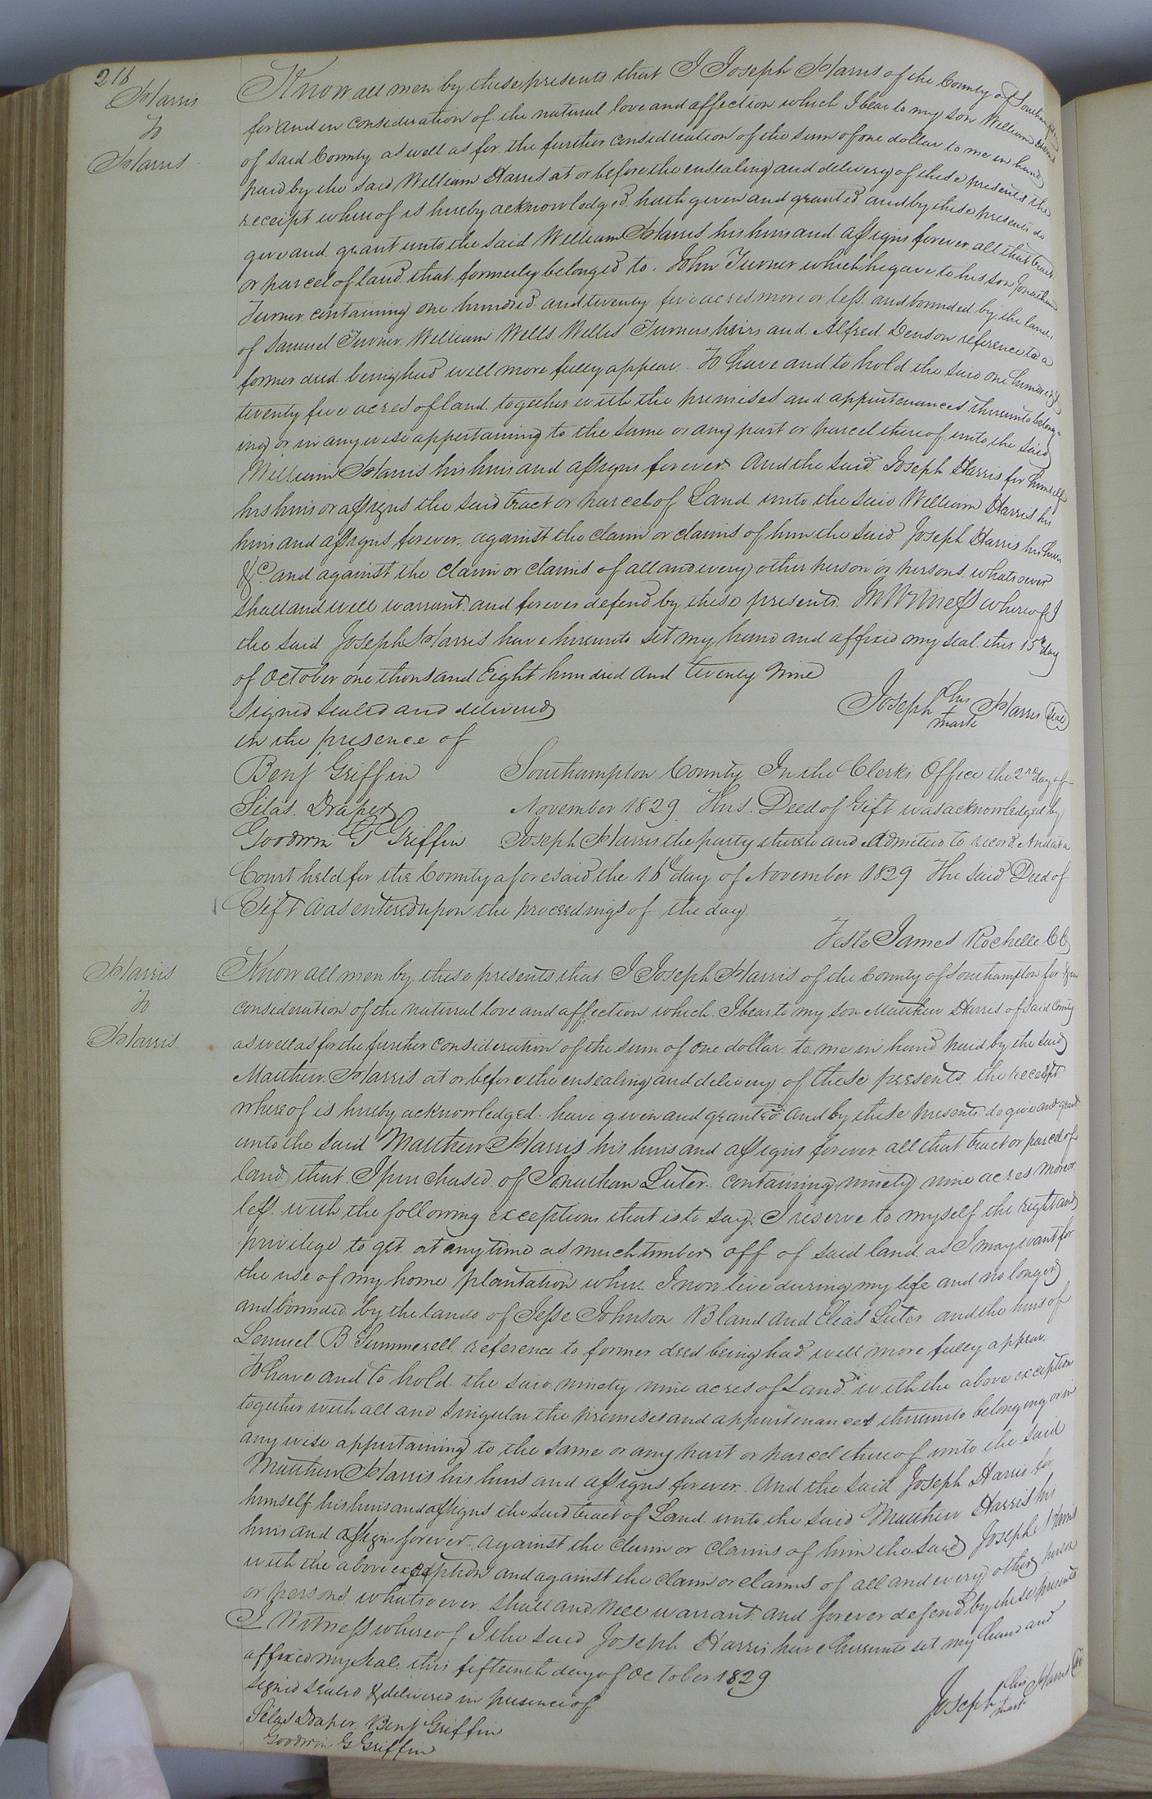 216
Harris
to
Harris
Know all men by these presents that I Joseph Harris of the County of Southampton
for and in consideration of the natural love and affection which I bear to my son William Harris
of said County as well as for the further consideration of the sum of one dollar to me in hand
paid by the said William Harris at or before the ensealing and delivery of these presents the
receipt whereof is hereby acknowledged hath given and granted and by these presents do
give and grant unto the said William Harris his heirs and assigns forever all that tract
or parcel of land that formerly belonged to John Turner which he gave to his son Jonathan
Turner containing one hundred and twenty five acres more or less and bounded by the lands
of Samuel Turner William Wells Willis Turners heirs and Alfred Denson reference to a
former deed being had will more fully appear. To have and to hold the said one hundred &
twenty five acres of land together with the premises and appurtenances thereunto belong-
ing or in any wise appertaining to the same or any part or parcel thereof unto the said
William Harris his heirs and assigns forever And the said Joseph Harris for himself
his heirs or assigns the said tract or parcel of Land unto the said William Harris his
heirs and assigns forever against the claim or claims of him the said Joseph Harris his heirs
&c and against the claim or claims of all and every other person or persons whatsoever
shall and will warrant and forever defend by these presents. In Witness whereof I
the said Joseph Harris have hereunto set my hand and affixed my seal this 15th day
of October one thousand Eight hundred and twenty Nine
Signed sealed and delivered
in the presence of
Joseph his mark Harris seal
Benj Griffin
Silas Draper
Goodwin G Griffin
Southampton County In the Clerks Office the 2nd day of
November 1829. This Deed of Gift was acknowledged by
Joseph Harris the party thereto and Admitted to record And at a
Court held for the County aforesaid the 16 day of November 1829 The said Deed of
Gift was entered upon the proceedings of the day
Teste James Rochelle CC
Harris
to
Harris
Know all men by these presents that I Joseph Harris of the County of Southampton for & in
consideration of the natural love and affection which I bear to my son Matthew Harris of said County
as well as for the further consideration of the sum of one dollar to me in hand paid by the said
Matthew Harris at or before the ensealing and delivery of these presents the receipt
whereof is hereby acknowledged have given and granted and by these presents do give and grant
unto the said Matthew Harris his heirs and assigns forever all that tract or parcel of
land that I purchased of Jonathan Luter containing ninety nine acres more or
less with the following exceptions that is to say I reserve to myself the right and
privilege to get at any time as much timber off of said land as I may want for
the use of my home plantation where I now live during my life and no longer
and bounded by the lands of Jesse Johnson Bland and Elias Luter and the heirs of
Lemuel B Summerell reference to former deed being had will more fully appear
To have and to hold the said ninety nine acres of Land with the above exception
together with all and singular the premises and appurtenances thereunto belonging or in
any wise appertaining to the same or any part or parcel thereof unto the said
Matthew Harris his heirs and assigns forever. And the said Joseph Harris for
himself his heirs and assigns the said tract of Land unto the said Matthew Harris his
heirs and assigns forever against the claim or claims of him the said Joseph Harris
with the above exception and against the claim or claims of all and every other person
or persons whatsoever shall and will warrant and forever defend by these presents
I Witness whereof I the said Joseph Harris have hereunto set my hand and
affixed my seal this fifteenth day of October 1829
Signed sealed & delivered in presence of
Joseph his mark Harris
Silas Draper Benj Griffin
Goodwin G Griffin